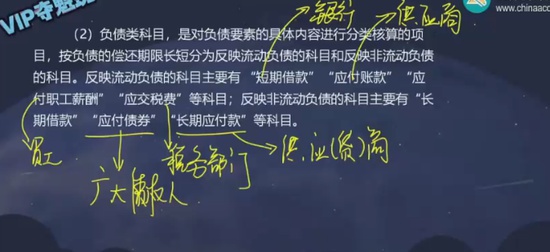 VIP夺冠班
www.chinaacc
银行
供应商
(2)负债类科目,是对负债要素的具体内容进行分类核算的项
目,按负债的偿还期限长短分为反映流动负债的科目和反映非流动负债
的科目。反映流动负债的科目主要有“短期借款”“应付账款”“应
付职工薪酬”“应交税费”等科目;反映非流动负债的科目主要有“长
期借款”“应付债券”“长期应付款”等科目。
员工
广大债权人
税务部门
供应(货)商